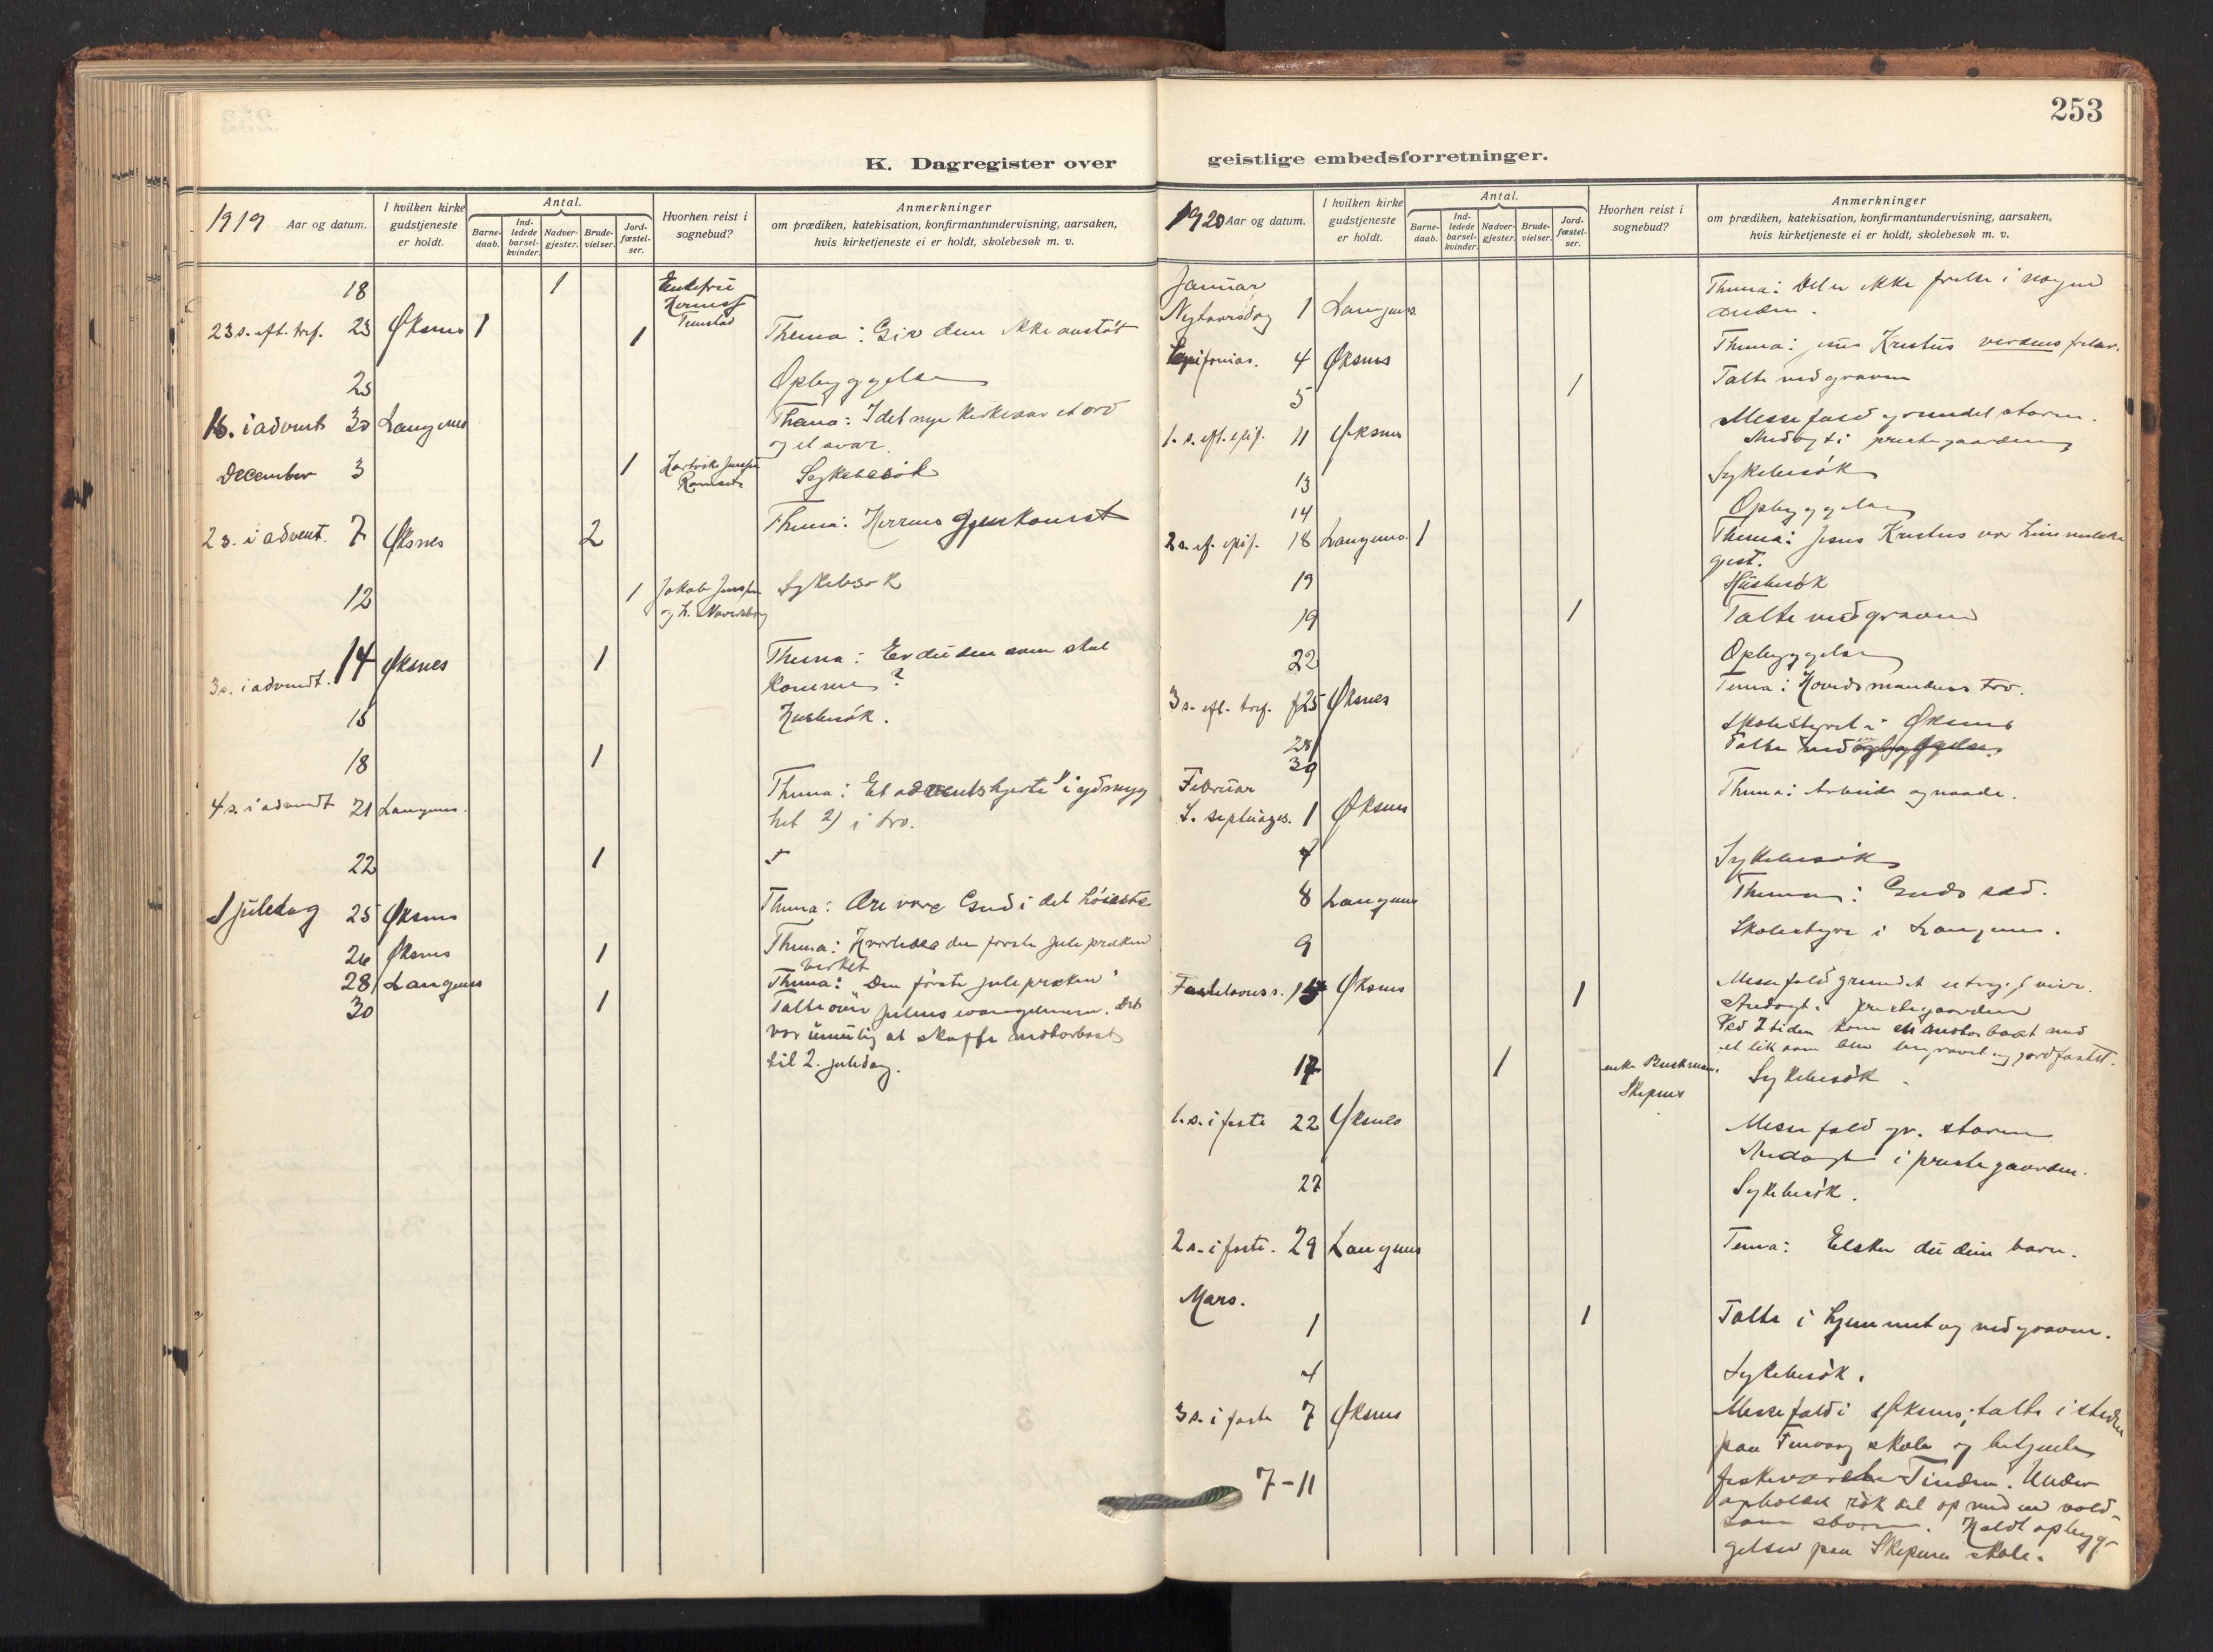 K. Dagregister over
1919 Aar og datum.
I hvilken kirke gudstjeneste er holdt.
Antal.
Barne-daab.
Ind-ledede barsel-kvinder.
Nadver-gjester.
Brude-vielser.
Jord-fæstel-ser.
Hvorhen reist i sognebud?
Anmerkninger
om prædiken, katekisation, konfirmantundervisning, aarsaken,
hvis kirketjeneste ei er holdt, skolebesøk m. v.
18 1 Enkefru
Tunstad
23 s. eft. tref. 23 Øksnes 1 1 Thema: Giv dem ikke anstöt
25 Opbyggelse
1 s. i advent 30 Langenes Thema: I det nye kirkeaar et ord
og et svar.
December 3 1 Sykebesök
2 s. i advent. 7 Øksnes 2 Thema: Herrens gjenkomst
12 1 Jakob Sykebesök
3 s. i advendt. 14 Øksnes 1 Thema: Er du den som skal
komme?
15 Husbesök.
18 1
4 s. i advendt 21 Langenes. Thema: Et adventshjerte 1) i ydmyg
het 2) i tro.
22 1
1 juledag 25 Øksnes Thema: Ære være Gud i det höieste
26 Øksnes 1 Thema: Hvorledes den förste jule præken
virket
28 Langenes Thema: "Den förste julepræken"
30 1 Talte over julens evangelium. Det
var umulig at skaffe motorbaat
til 2. juledag.
253
geistlige embedsforretninger.
1920 Aar og datum.
I hvilken kirke gudstjeneste er holdt.
Antal.
Barne-daab.
Ind-ledede barsel-kvinder.
Nadver-gjester.
Brude-vielser.
Jord-fæstel-ser.
Hvorhen reist i sognebud?
Anmerkninger
om prædiken, katekisation, konfirmantundervisning, aarsaken,
hvis kirketjeneste ei er holdt, skolebesøk m. v.
Januar
Nytaarsdag 1 Langenes. Thema: Det er ikke frelse i nogen
anden.
Epifanias. 4 Øksnes Thema: Jesus Kristus verdens frelser.
5 1 Talte ved graven
1. s. eft. epif. 11 Øksnes Messefald grundet storm.
Andagt i prestegaarden
13 Sykebesök
14 Opbyggelse
2 s. ef. epif. 18 Langenes. 1 Thema: Jesus Kristus vor himmelske
gjest.
19 Husbesök
19 1 Talte ved graven
22 Opbyggelse
3 s. eft. tref. 25 Øksnes Tema: Hövedsmandens tro.
28 Skolestyret i Øksnes
30 Talte ved opbyggelse
Februar
S. septuages. 1 Øksnes Thema: Arbeide og naade.
4 Sykebesök
8 Langenes Thema: Guds sæd.
9 Skolestyre i Langenes.
Fastelavns s. 15 Øksnes 1 Messefald grundet
Andagt i prestegaarden
Ved 2 tiden kom en motorbaat med
et lik som blev begravet og jordfæstet.
17 1 enke
Skipnes Sykebesök
1. s. i faste 22 Øksnes Messefald gr. storm
Andagt i prestegaarden.
27 Sykebesök.
2 s. i faste. 29 Langenes Tema: Elsker du dine barn.
Mars.
1 1 Talte i hjemmet og ved graven.
4 Sykebesök.
3 s. i faste 7 Øksnes Messefald i Øksnes; talte i steden
paa skole og betjente
7-11 fiskeværet Tinden. Under
opholdet rök det op med en vold-
som storm. Holdt opbyg-
gelser paa Skipnes skole.